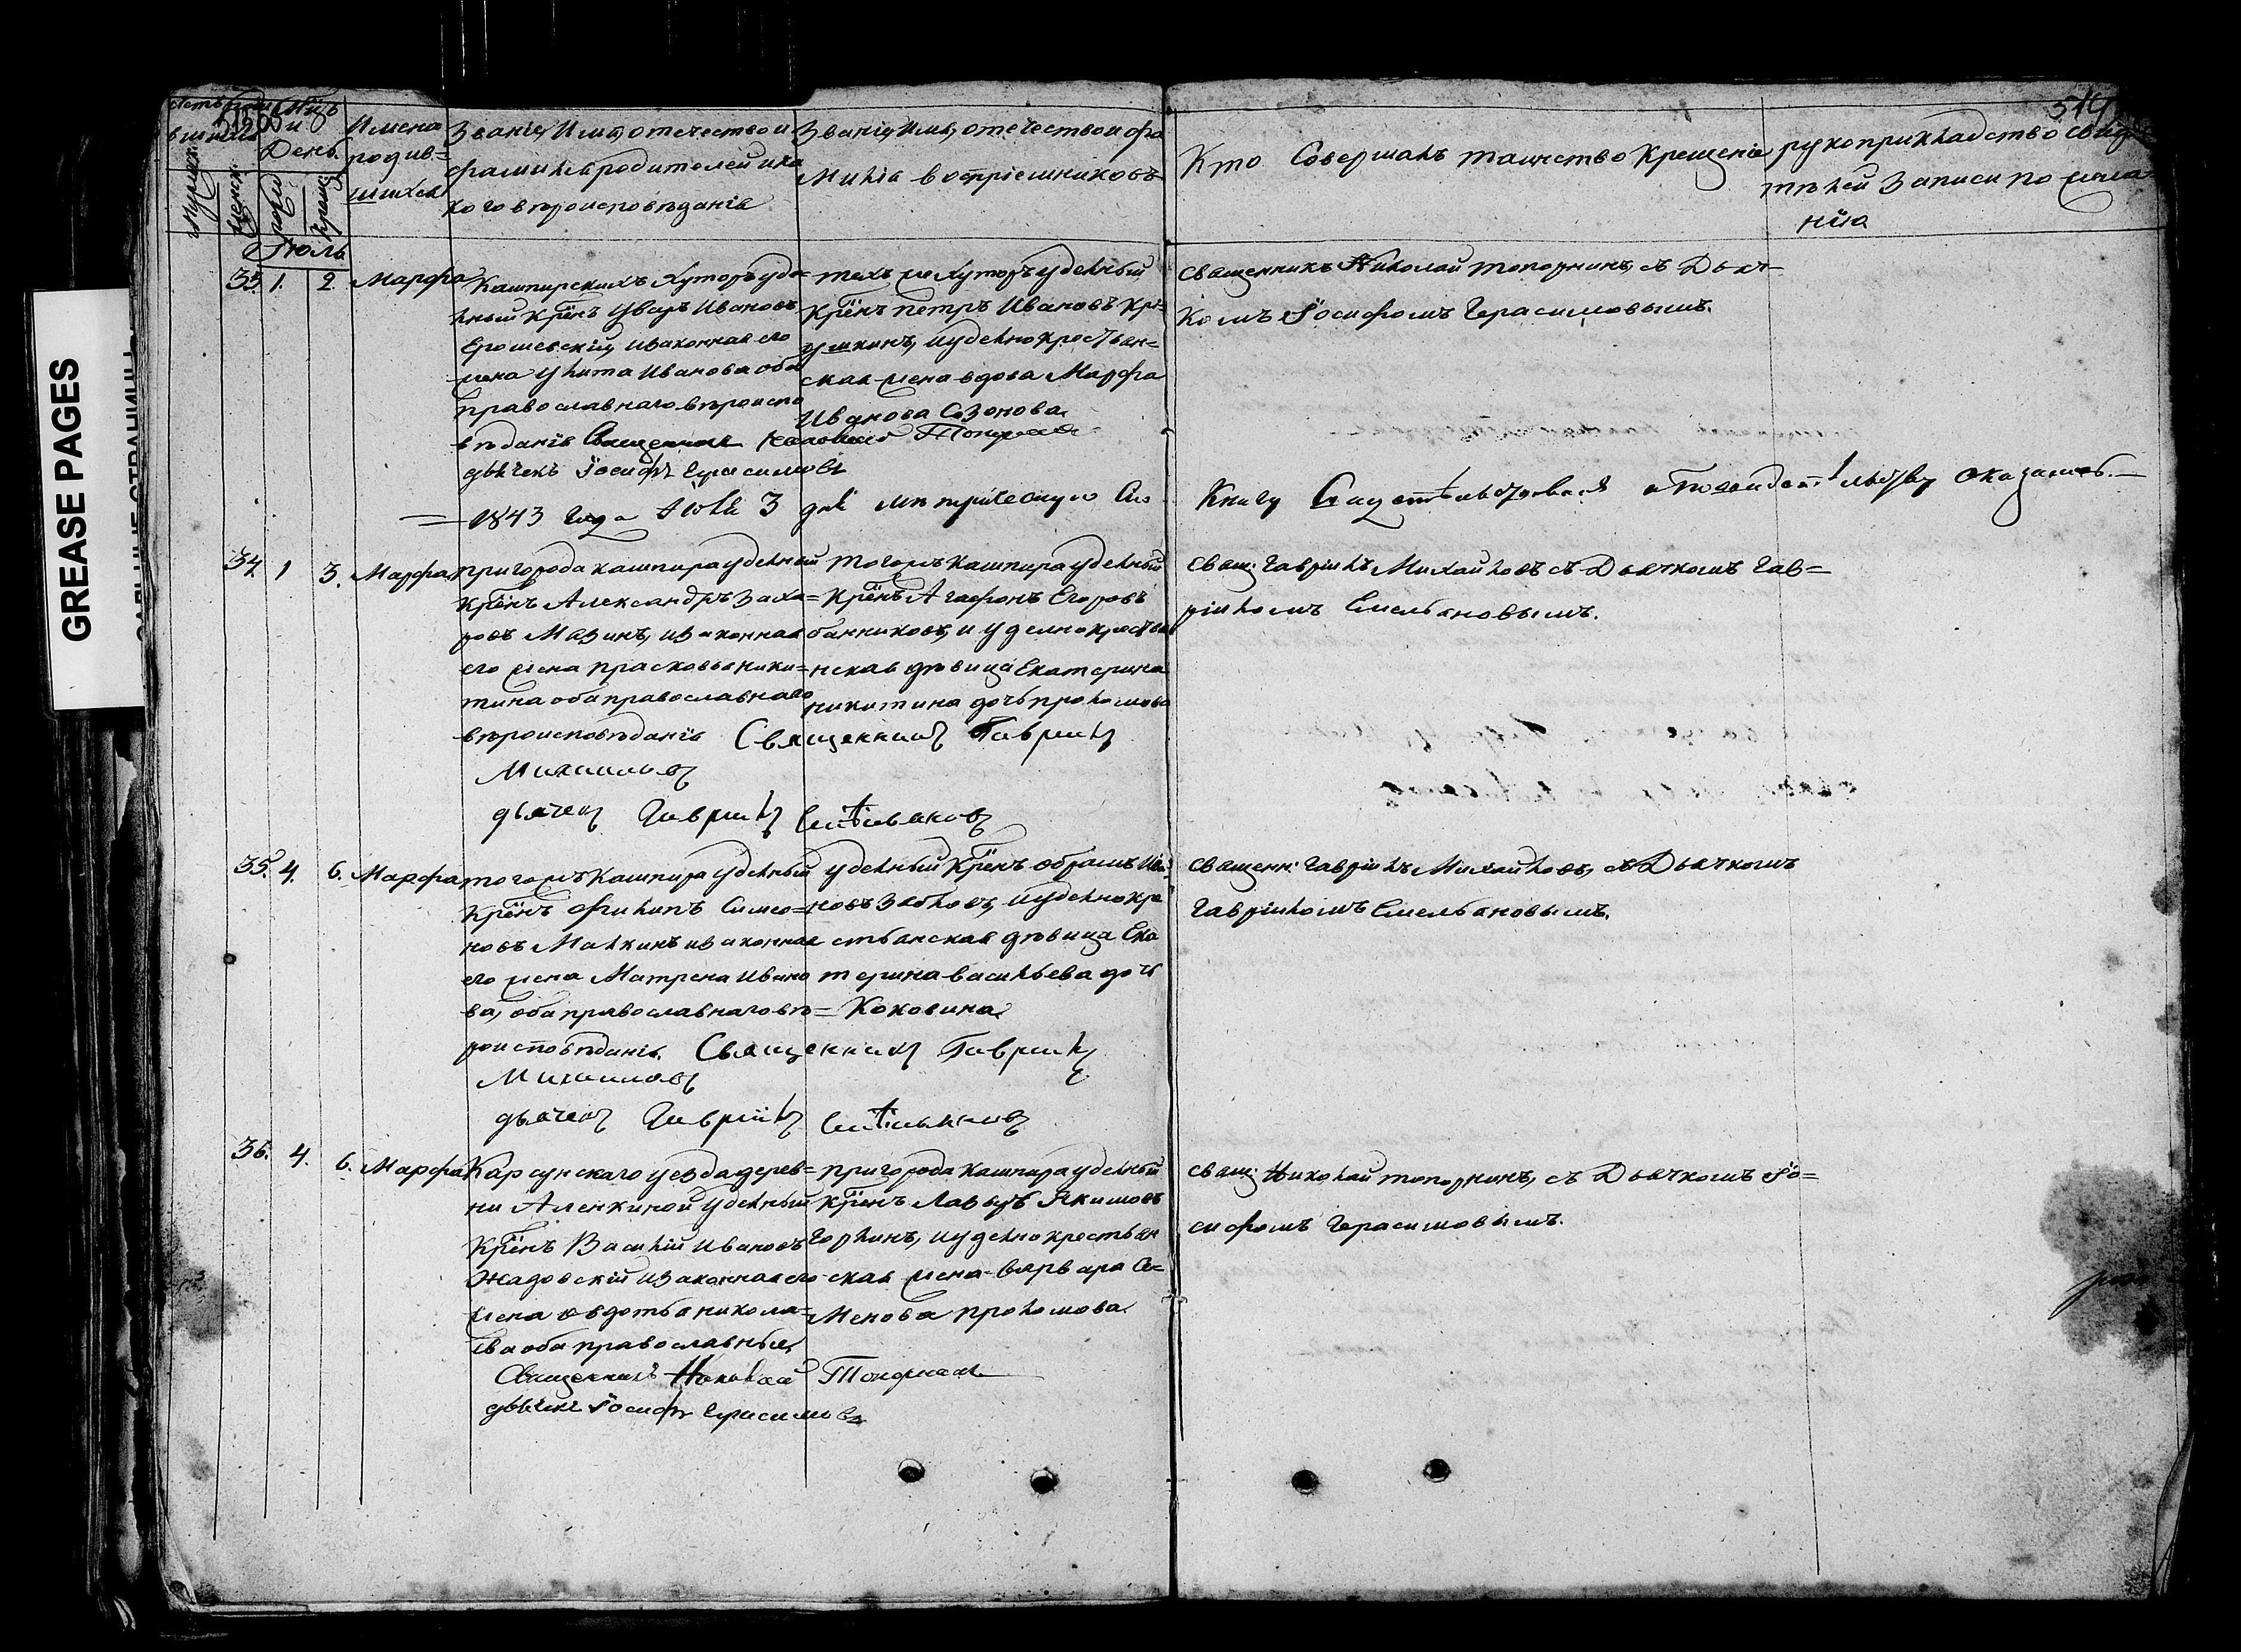 GREASE PAGES
519
Мцъ и
День.
Имена
родив=
шихся
Званіе, Имя, отечество и
фамилія родителей и ка
кого вѣроисповѣданія
Званіе, Имя, отечество и фа
милія воспріемниковъ
Кто Совершалъ таинство Крещенія
рукоприкладство свидѣ
телей Записи по жела
нію
Іюль
33. 1. 2. Марфа
Кашпирскихъ Хуторъ удѣ=
льный Крѣнъ Уваръ Ивановъ
Ерошевскій, и законная его
жена Улита Иванова оба
православнаго вѣроиспо
вѣданія Священникъ Николай Топорнинъ
дьячекъ Іосифъ Герасимовъ
тѣхъ же Хуторъ удѣльный
Крѣнъ Петръ Ивановъ
и удѣльнокрестьян=
ская жена вдова Марфа
Иванова Созонова.
Священникъ Николай топорнинъ, съ Дьяч=
комъ Іосифомъ Герасимовымъ.
1843 года Іюля 3 дня
Книгу Свидѣтельствовалъ
оказалось.
34. 1 3. Марфа
пригорода кашпира удѣльный
Крѣнъ Александръ Заха=
ровъ Мазинъ, и законная
его жена прасковья ники=
тина оба православнаго
вѣроисповѣданія Священникъ Гавріилъ
Михайловъ
дьячекъ Гавріилъ Емельяновъ
тогожъ Кашпира удѣльный
Крѣнъ Агафонъ Егоровъ
банниковъ, и удѣльнокрестья
нская дѣвица Екатерина
никитина дочь прохомова
свящ: Гавріилъ Михайловъ съ Дьячкомъ Гав=
ріиломъ Емельяновымъ.
35. 4. 6. Марфа
тогожъ Кашпира удѣльный
Крѣнъ Филипъ Симео=
новъ Малкинъ и законная
его жена Матрена Ивано
ва, оба православнаго вѣ=
роисповѣданія. Священникъ Гавріилъ
Михайловъ
дьячекъ Гавріилъ Емельяновъ
удѣльный Крѣнъ Абрамъ Ива=
новъ Зотовъ, и удѣльнокре
стьянская дѣвица Ека
терина васильева дочь
Коковина.
Священ: Гавріилъ Михайловъ, съ Дьячкомъ
Гавріиломъ Емельяновымъ.
36. 4. 6. Марфа
Карсунскаго уезда дерев=
ни Аленкиной удѣльный
Крѣнъ Василій Ивановъ
Жадовскій и законная его
жена евдотья никола=
ева оба православные.
Священникъ Николай Топорнинъ
дьячекъ Іосифъ Герасимовъ
пригорода кашпира удѣльный
Крѣнъ Лавръ Якимовъ
Горлинъ, и удѣльнокрестьян
ская жена варвара Се=
менова прохомова.
свящ: Николай топорнинъ, съ Дьячкомъ Іо=
сифомъ Герасимовымъ.